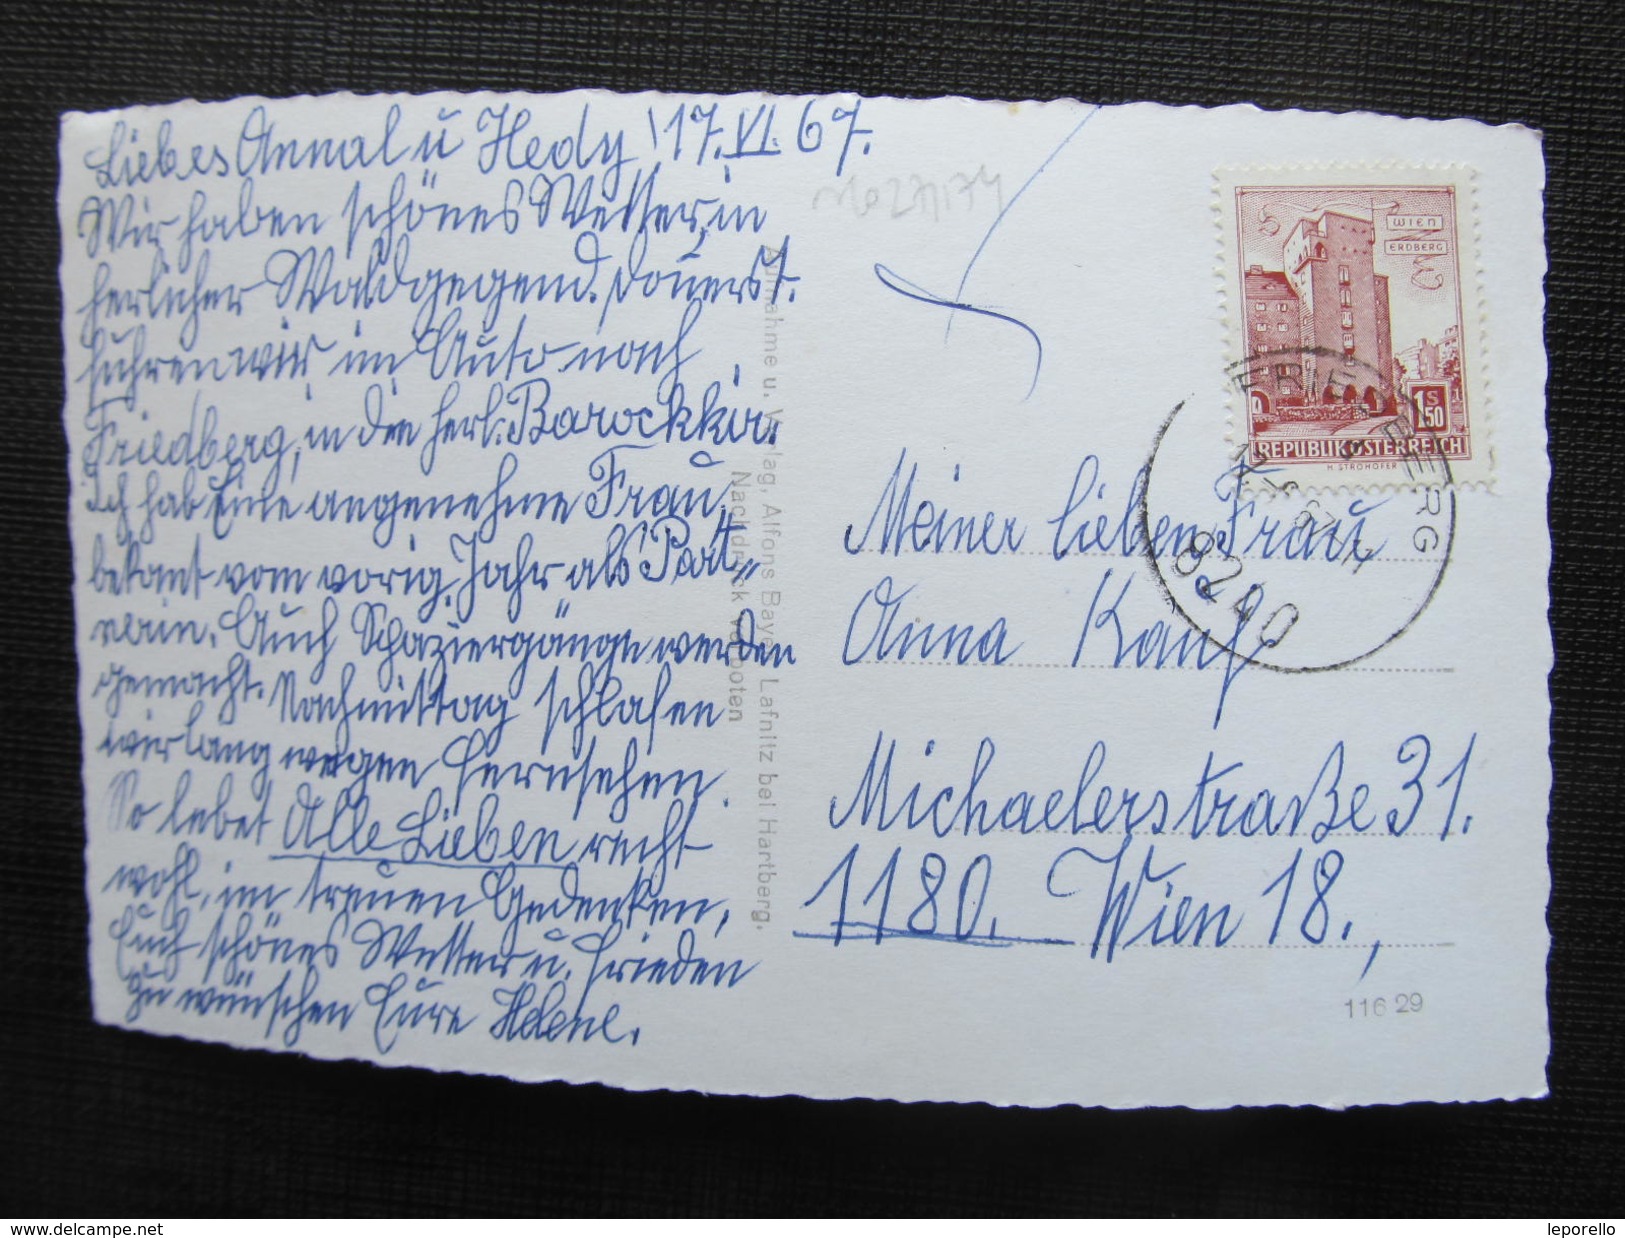 Liebes Annal u Hedy ! 17. VI. 67.
Wir haben schönes Wetter, in
herlicher Waldgegend. Donerst.
fuhren wir im Auto nach
Friedberg, in die herl. Barockkir.
Ich hab Eine angenehme Frau
bekant vom vorig. Jahr als Part-
nerin. Auch Spaziergänge werden
gemacht. Nachmittag schlafen
wir lang wegen Fernsehen.
So lebet Alle Lieben recht
wohl, im treuen Gedenken,
Euch schönes Wetter u. Frieden
zu wünschen Eure Helene.
Aufnahme u. Verlag, Alfons Bayer, Lafnitz bei Hartberg.
Nachdruck verboten
WIEN
ERDBERG
1 S 50
REPUBLIK ÖSTERREICH
H. STROHOFER
FRIEDBERG
8240
Meiner lieben Frau
Anna Kauf
Michaelerstraße 31.
1180. Wien 18.,
116 29
delcampe.net
leporello